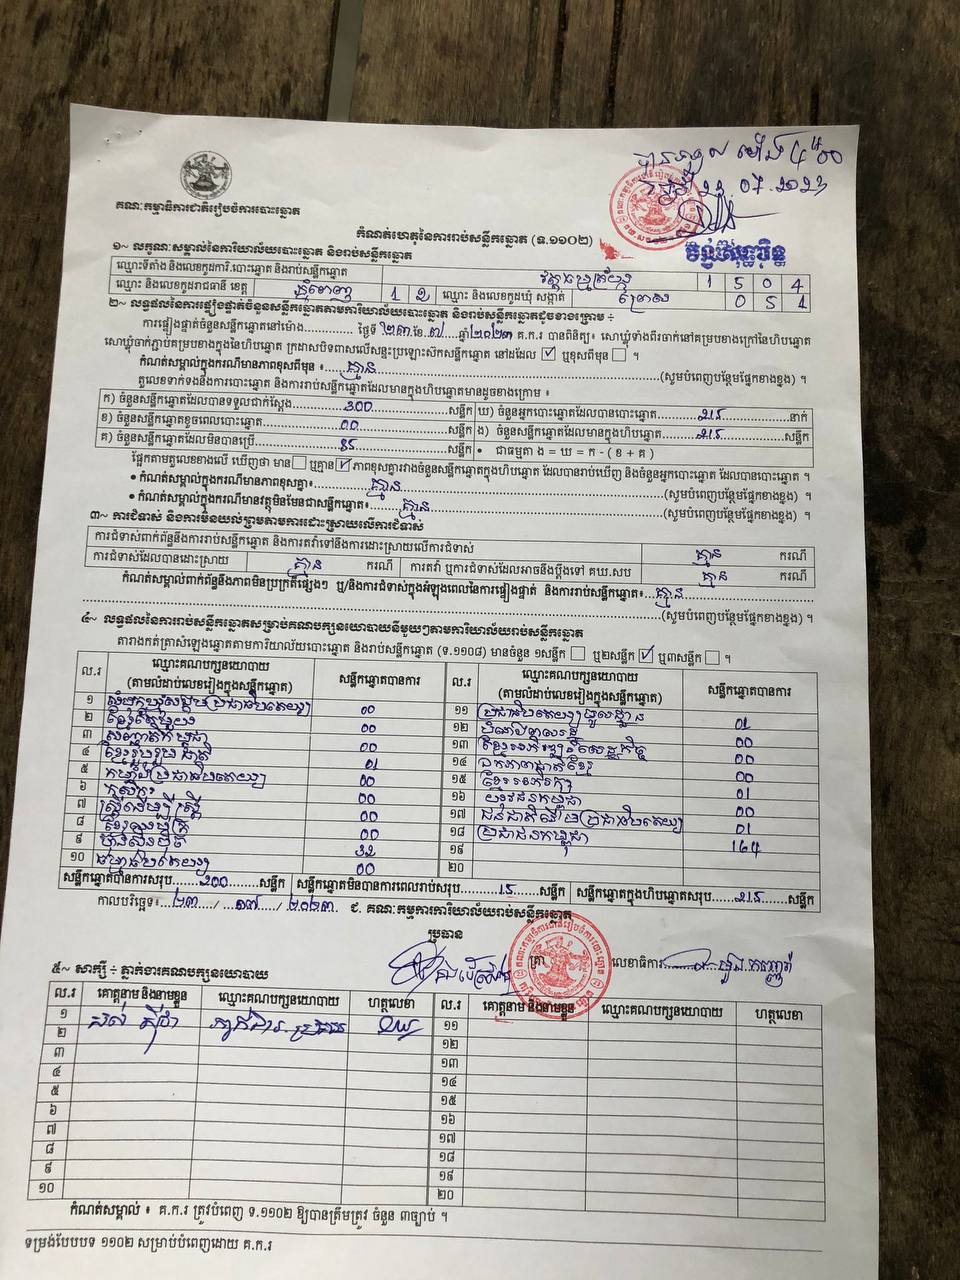 គណៈកម្មាធិការជាតិរៀបចំការបោះឆ្នោត
កំណត់ហេតុនៃការរាប់សន្លឹកឆ្នោត (ទ.១១០២)
២៣.07.2023
១~ លក្ខណៈសម្គាល់នៃការិយាល័យបោះឆ្នោត និងរាប់សន្លឹកឆ្នោត
ឈ្មោះទីតាំង និងលេខកូដការិ.បោះឆ្នោត និងរាប់សន្លឹកឆ្នោត 1 5 0 4
ឈ្មោះ និងលេខកូដរាជធានី ខេត្ត ភ្នំពេញ 1 2 ឈ្មោះ និងលេខកូដឃុំ សង្កាត់ 0 5 1
២~ លទ្ធផលនៃការផ្ទៀងផ្ទាត់ចំនួនសន្លឹកឆ្នោតតាមការិយាល័យបោះឆ្នោត និងរាប់សន្លឹកឆ្នោតដូចខាងក្រោម ÷
ការផ្ទៀងផ្ទាត់ចំនួនសន្លឹកឆ្នោតនៅម៉ោង............ ថ្ងៃទី ២៣ ខែ ៧ ឆ្នាំ ២០២៣ គ.ក.រ បានពិនិត្យ៖ សោឃ្លុំទាំងពីរចាក់នៅគម្របខាងក្រៅនៃហិបឆ្នោត
សោឃ្លុំចាក់ភ្ជាប់គម្របខាងក្នុងនៃហិបឆ្នោត ក្រដាសបិទពាសលើសន្ទះប្រឡោះស៊កសន្លឹកឆ្នោត នៅដដែល ☑ ឬខុសពីមុន ☐ ។
កំណត់សម្គាល់ក្នុងករណីមានភាពខុសពីមុន ៖ គ្មាន (សូមបំពេញបន្ថែមផ្នែកខាងខ្នង) ។
តួលេខទាក់ទងនឹងការបោះឆ្នោត និងការរាប់សន្លឹកឆ្នោតដែលមានក្នុងហិបឆ្នោតមានដូចខាងក្រោម ៖
ក) ចំនួនសន្លឹកឆ្នោតដែលបានទទួលជាក់ស្តែង 300 សន្លឹក ឃ) ចំនួនអ្នកបោះឆ្នោតដែលបានបោះឆ្នោត 215 នាក់
ខ) ចំនួនសន្លឹកឆ្នោតខូចពេលបោះឆ្នោត 00 សន្លឹក ង) ចំនួនសន្លឹកឆ្នោតដែលមានក្នុងហិបឆ្នោត 215 សន្លឹក
គ) ចំនួនសន្លឹកឆ្នោតដែលមិនបានប្រើ 85 សន្លឹក • ជាធម្មតា ង = ឃ = ក - ( ខ + គ )
ផ្អែកតាមតួលេខខាងលើ ឃើញថា មាន ☐ ឬគ្មាន ☑ ភាពខុសគ្នារវាងចំនួនសន្លឹកឆ្នោតក្នុងហិបឆ្នោត ដែលបានរាប់ឃើញ និងចំនួនអ្នកបោះឆ្នោត ដែលបានបោះឆ្នោត ។
• កំណត់សម្គាល់ក្នុងករណីមានភាពខុសគ្នា៖ គ្មាន (សូមបំពេញបន្ថែមផ្នែកខាងខ្នង) ។
• កំណត់សម្គាល់ក្នុងករណីមានវត្ថុមិនមែនជាសន្លឹកឆ្នោត៖ គ្មាន (សូមបំពេញបន្ថែមផ្នែកខាងខ្នង) ។
៣~ ការជំទាស់ និងការមិនយល់ព្រមតាមការដោះស្រាយលើការជំទាស់
ការជំទាស់ពាក់ព័ន្ធនឹងការរាប់សន្លឹកឆ្នោត និងការតវ៉ាទៅនឹងការដោះស្រាយលើការជំទាស់ គ្មាន ករណី
ការជំទាស់ដែលបានដោះស្រាយ គ្មាន ករណី ការតវ៉ា ឬការជំទាស់ដែលអាចនឹងប្តឹងទៅ គឃ.សប គ្មាន ករណី
កំណត់សម្គាល់ពាក់ព័ន្ធនឹងភាពមិនប្រក្រតីផ្សេងៗ ឬ/និងការជំទាស់ក្នុងអំឡុងពេលនៃការផ្ទៀងផ្ទាត់ និងការរាប់សន្លឹកឆ្នោត៖ គ្មាន
(សូមបំពេញបន្ថែមផ្នែកខាងខ្នង) ។
៤~ លទ្ធផលនៃការរាប់សន្លឹកឆ្នោតសម្រាប់គណបក្សនយោបាយនីមួយៗតាមការិយាល័យរាប់សន្លឹកឆ្នោត
តារាងកត់ត្រាសំឡេងឆ្នោតតាមការិយាល័យបោះឆ្នោត និងរាប់សន្លឹកឆ្នោត (ទ.១១០៨) មានចំនួន ១សន្លឹក ☐ ឬ២សន្លឹក ☑ ឬ៣សន្លឹក ☐ ។
ល.រ ឈ្មោះគណបក្សនយោបាយ (តាមលំដាប់លេខរៀងក្នុងសន្លឹកឆ្នោត) សន្លឹកឆ្នោតបានការ ល.រ ឈ្មោះគណបក្សនយោបាយ (តាមលំដាប់លេខរៀងក្នុងសន្លឹកឆ្នោត) សន្លឹកឆ្នោតបានការ
១ សំបុកឃ្មុំសង្គមប្រជាធិបតេយ្យ 00 ១១ ប្រជាធិបតេយ្យមូលដ្ឋាន 01
២ 00 ១២ 00
៣ សញ្ជាតិកម្ពុជា 00 ១៣ ខ្មែរអភិវឌ្ឍន៍សេដ្ឋកិច្ច 00
៤ ខ្មែររួបរួមជាតិ 01 ១៤ ឯកភាពជាតិខ្មែរ 00
៥ កម្លាំងប្រជាធិបតេយ្យ 00 ១៥ ខ្មែរអភិរក្ស 01
៦ កសិករ 00 ១៦ យុវជនកម្ពុជា 00
៧ ស្ត្រីដើម្បីស្ត្រី 00 ១៧ ជនជាតិដើមប្រជាធិបតេយ្យ 01
៨ ខ្មែរឈប់ក្រ 00 ១៨ ប្រជាជនកម្ពុជា 164
៩ ហ៊្វុនស៊ិនប៉ិច 32 ១៩
១០ ធម្មាធិបតេយ្យ 00 ២០
សន្លឹកឆ្នោតបានការសរុប 200 សន្លឹក សន្លឹកឆ្នោតមិនបានការពេលរាប់សរុប 15 សន្លឹក សន្លឹកឆ្នោតក្នុងហិបឆ្នោតសរុប 215 សន្លឹក
កាលបរិច្ឆេទ៖ ២៣ / ០៧ / ២០២៣ ជ. គណៈកម្មការការិយាល័យរាប់សន្លឹកឆ្នោត
ប្រធាន
ត្រា លេខាធិការ
៥~ សាក្សី ÷ ភ្នាក់ងារគណបក្សនយោបាយ
ល.រ គោត្តនាម និងនាមខ្លួន ឈ្មោះគណបក្សនយោបាយ ហត្ថលេខា ល.រ គោត្តនាម និងនាមខ្លួន ឈ្មោះគណបក្សនយោបាយ ហត្ថលេខា
១ ១១
២ ១២
៣ ១៣
៤ ១៤
៥ ១៥
៦ ១៦
៧ ១៧
៨ ១៨
៩ ១៩
១០ ២០
កំណត់សម្គាល់ ៖ គ.ក.រ ត្រូវបំពេញ ទ.១១០២ ឱ្យបានត្រឹមត្រូវ ចំនួន ៣ច្បាប់ ។
ទម្រង់បែបបទ ១១០២ សម្រាប់បំពេញដោយ គ.ក.រ